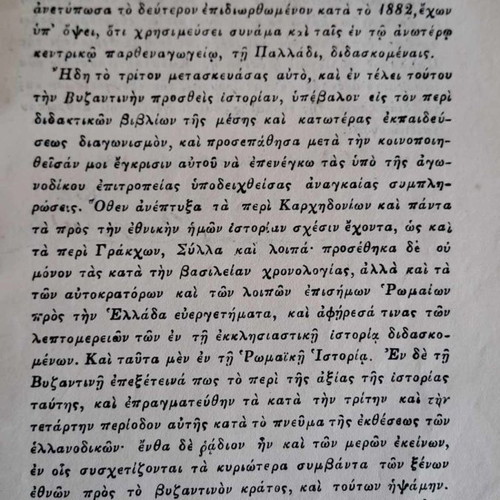 ἀνετύπωσα τὸ δεύτερον ἐπιδιωρθωμένον κατὰ τὸ 1882, ἔχων
ὑπ' ὄψει, ὅτι χρησιμεύσει συνάμα καὶ ταῖς ἐν τῷ ἀνωτέρῳ
κεντρικῷ παρθεναγωγείῳ, τῇ Παλλάδι, διδασκομέναις.
Ἤδη τὸ τρίτον μετασκευάσας αὐτὸ, καὶ ἐν τέλει τούτου
τὴν Βυζαντινὴν προσθεὶς ἱστορίαν, ὑπέβαλον εἰς τὸν περὶ
διδακτικῶν βιβλίων τῆς μέσης καὶ κατωτέρας ἐκπαιδεύ-
σεως διαγωνισμὸν, καὶ προσεπάθησα μετὰ τὴν κοινοποιη-
θεῖσάν μοι ἔγκρισιν αὐτοῦ νὰ ἐπενέγκω τὰς ὑπὸ τῆς ἀγω-
νοδίκου ἐπιτροπείας ὑποδειχθείσας ἀναγκαίας συμπλη-
ρώσεις. Ὅθεν ἀνέπτυξα τὰ περὶ Καρχηδονίων καὶ πάντα
τὰ πρὸς τὴν ἐθνικὴν ἡμῶν ἱστορίαν σχέσιν ἔχοντα, ὡς καὶ
τὰ περὶ Γράκχων, Σύλλα καὶ λοιπά· προσέθηκα δὲ οὐ
μόνον τὰς κατὰ τὴν βασιλείαν χρονολογίας, ἀλλὰ καὶ τὰ
τῶν αὐτοκρατόρων καὶ τῶν λοιπῶν ἐπισήμων Ῥωμαίων
πρὸς τὴν Ἑλλάδα εὐεργετήματα, καὶ ἀφῄρεσά τινας τῶν
λεπτομερειῶν τῶν ἐν τῇ ἐκκλησιαστικῇ ἱστορίᾳ διδασκο-
μένων. Καὶ ταῦτα μὲν ἐν τῇ Ῥωμαϊκῇ Ἱστορίᾳ. Ἐν δὲ τῇ
Βυζαντινῇ ἐπεξέτεινά πως τὸ περὶ τῆς ἀξίας τῆς ἱστορίας
ταύτης, καὶ ἐπραγματεύθην τὰ κατὰ τὴν τρίτην καὶ τὴν
τετάρτην περίοδον αὐτῆς κατὰ τὸ πνεῦμα τῆς ἐκθέσεως τῶν
ἑλλανοδικῶν· ἔνθα δὲ ῥᾴδιον ἦν καὶ τῶν μερῶν ἐκείνων,
ἐν οἷς συσχετίζονται τὰ κυριώτερα συμβάντα τῶν ξένων
ἐθνῶν πρὸς τὸ βυζαντινὸν κράτος, καὶ τούτων ἡψάμην.